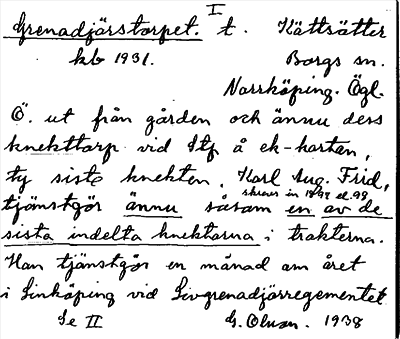 I
Grenadjärstorpet. t. Kättsätter
kb 1931. Borgs sn.
Norrköping. Ögl.
Ö. ut från gården och ännu dess
knekttorp vid Stp å ek-kartan,
ty siste knekten, Karl Aug. Frid,
skrevs in 1897 el. 98
tjänstgör ännu såsom en av de
sista indelta knektarna i trakterna.
Han tjänstgör en månad om året
i Linköping vid Livgrenadjärregementet
Se II G. Olsson. 1938